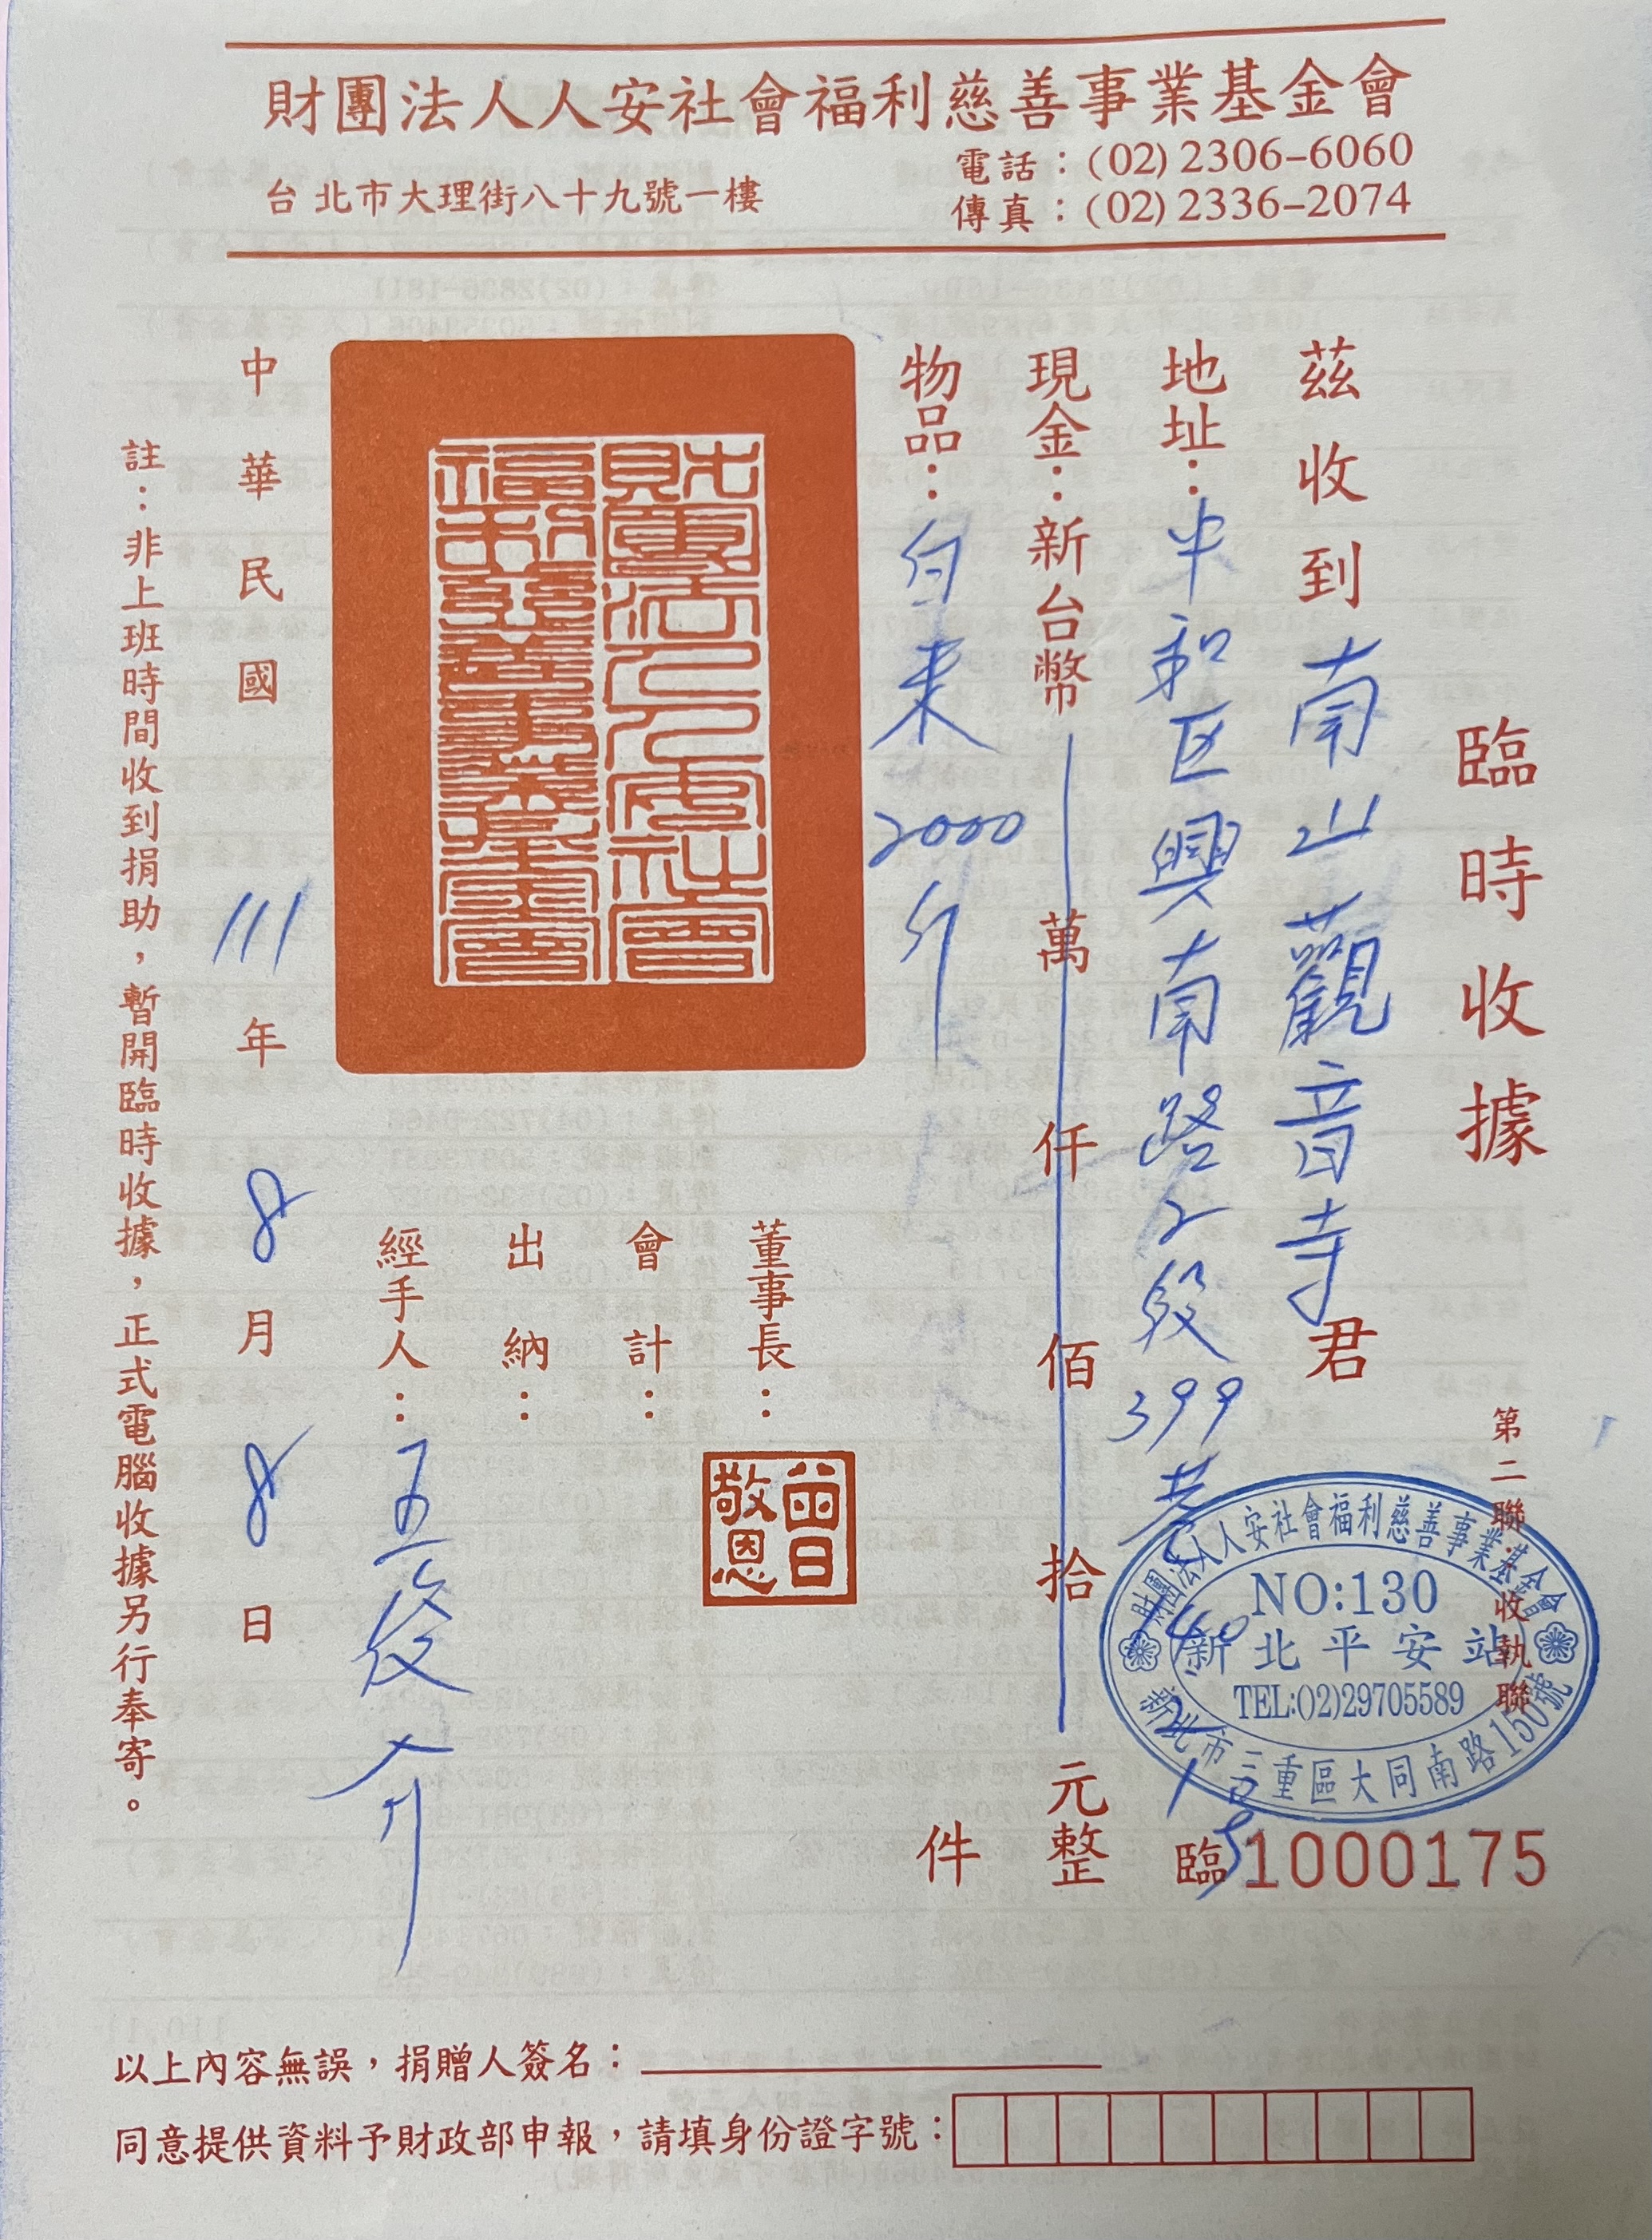 財團法人人安社會福利慈善事業基金會
台北市大理街八十九號一樓
電話：(02) 2306-6060
傳真：(02) 2336-2074
臨時收據
茲收到南山觀音寺君
地址：中和区興南路2段399巷140之1号
現金：新台幣萬仟佰拾元整
物品：白米2000斤件
財團法人人安社會
福利慈善事業基金會
董事長：
曾日
敬恩
會計：
出納：
經手人：
中華民國111年8月8日
註：非上班時間收到捐助，暫開臨時收據，正式電腦收據另行奉寄。
第二聯：收執聯
財團法人人安社會福利慈善事業基金會
NO:130
新北平安站
TEL:(02)29705589
新北市三重區大同南路150號
臨1000175
以上內容無誤，捐贈人簽名：
同意提供資料予財政部申報，請填身份證字號：